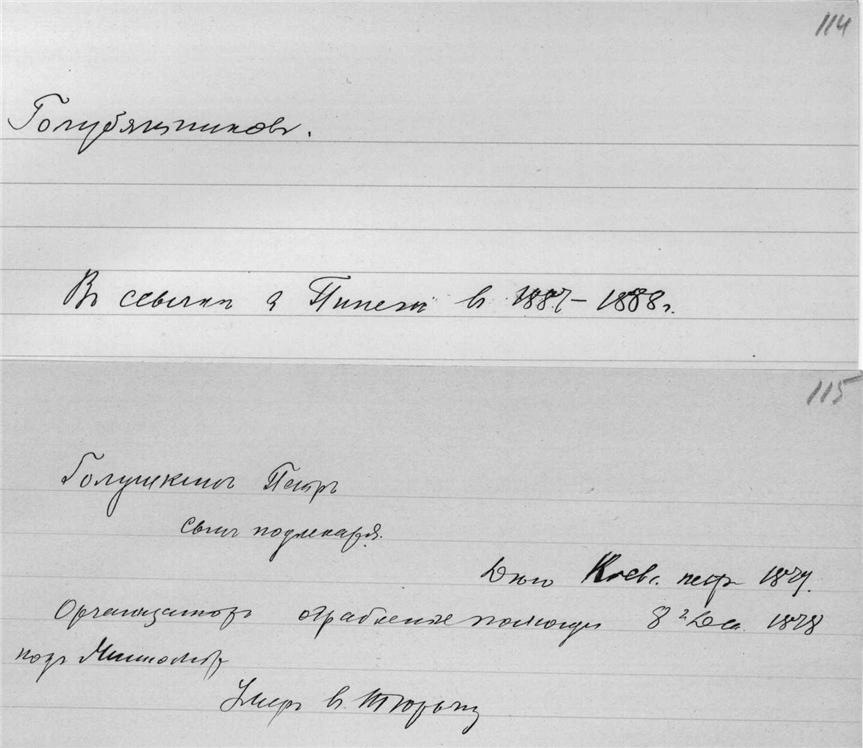 114
Голубятниковъ.
Въ ссылки в Пинеги в 1887–1888 г.
115
Голушкинъ Петръ
сынъ подлекаря.
Дело Киев. 1879.
Организаторъ ограбления почты 8 Дек. 1878
подъ
Умеръ в тюрьму